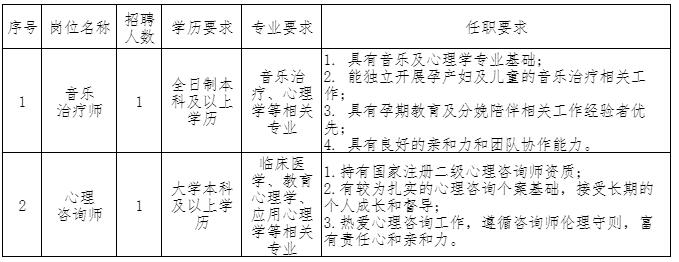 序号 岗位名称 招聘人数 学历要求 专业要求 任职要求
1 音乐治疗师 1 全日制本科及以上学历 音乐治疗、心理学等相关专业
1. 具有音乐及心理学专业基础；
2. 能独立开展孕产妇及儿童的音乐治疗相关工作；
3. 具有孕期教育及分娩陪伴相关工作经验者优先；
4. 具有良好的亲和力和团队协作能力。
2 心理咨询师 1 大学本科及以上学历 临床医学、教育心理学、应用心理学等相关专业
1.持有国家注册二级心理咨询师资质；
2.有较为扎实的心理咨询个案基础，接受长期的个人成长和督导；
3.热爱心理咨询工作，遵循咨询师伦理守则，富有责任心和亲和力。